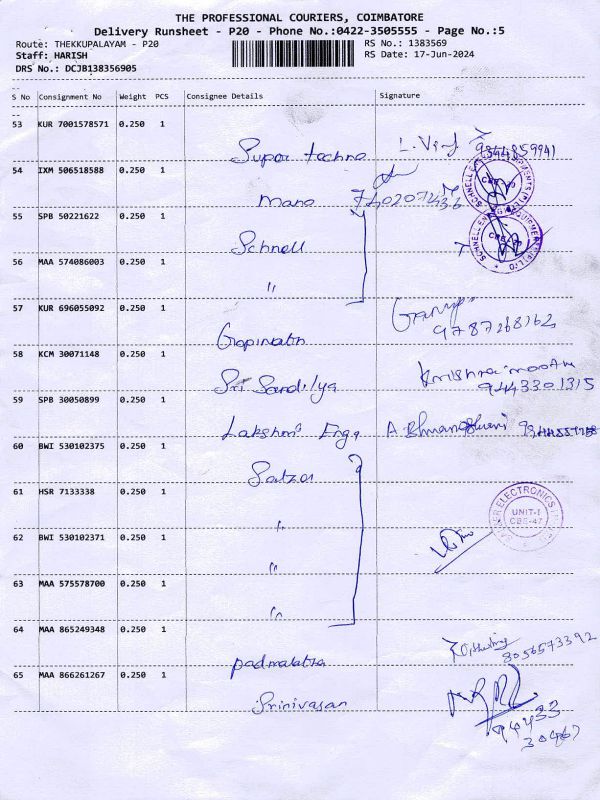 THE PROFESSIONAL COURIERS, COIMBATORE
Delivery Runsheet - P20 - Phone No.:0422-3505555 - Page No.:5
Route: THEKKUPALAYAM - P20 RS No.: 1383569
Staff: HARISH RS Date: 17-Jun-2024
DRS No.: DCJB138356905
S No Consignment No Weight PCS Consignee Details Signature
53 KUR 7001578571 0.250 1
Super techno
54 IXM 506518588 0.250 1
Mano
55 SPB 50221622 0.250 1
Schnell
56 MAA 574086003 0.250 1
"
57 KUR 696055092 0.250 1
Gopinath 9787268162
58 KCM 30071148 0.250 1
Sri Sandilya 9443301315
59 SPB 30050899 0.250 1
Lakshmi Engg
60 BWI 530102375 0.250 1
61 HSR 7133338 0.250 1
"
UNIT-I
62 BWI 530102371 0.250 1
"
63 MAA 575578700 0.250 1
"
64 MAA 865249348 0.250 1
8056573392
65 MAA 866261267 0.250 1
Srinivasan
94433
30467